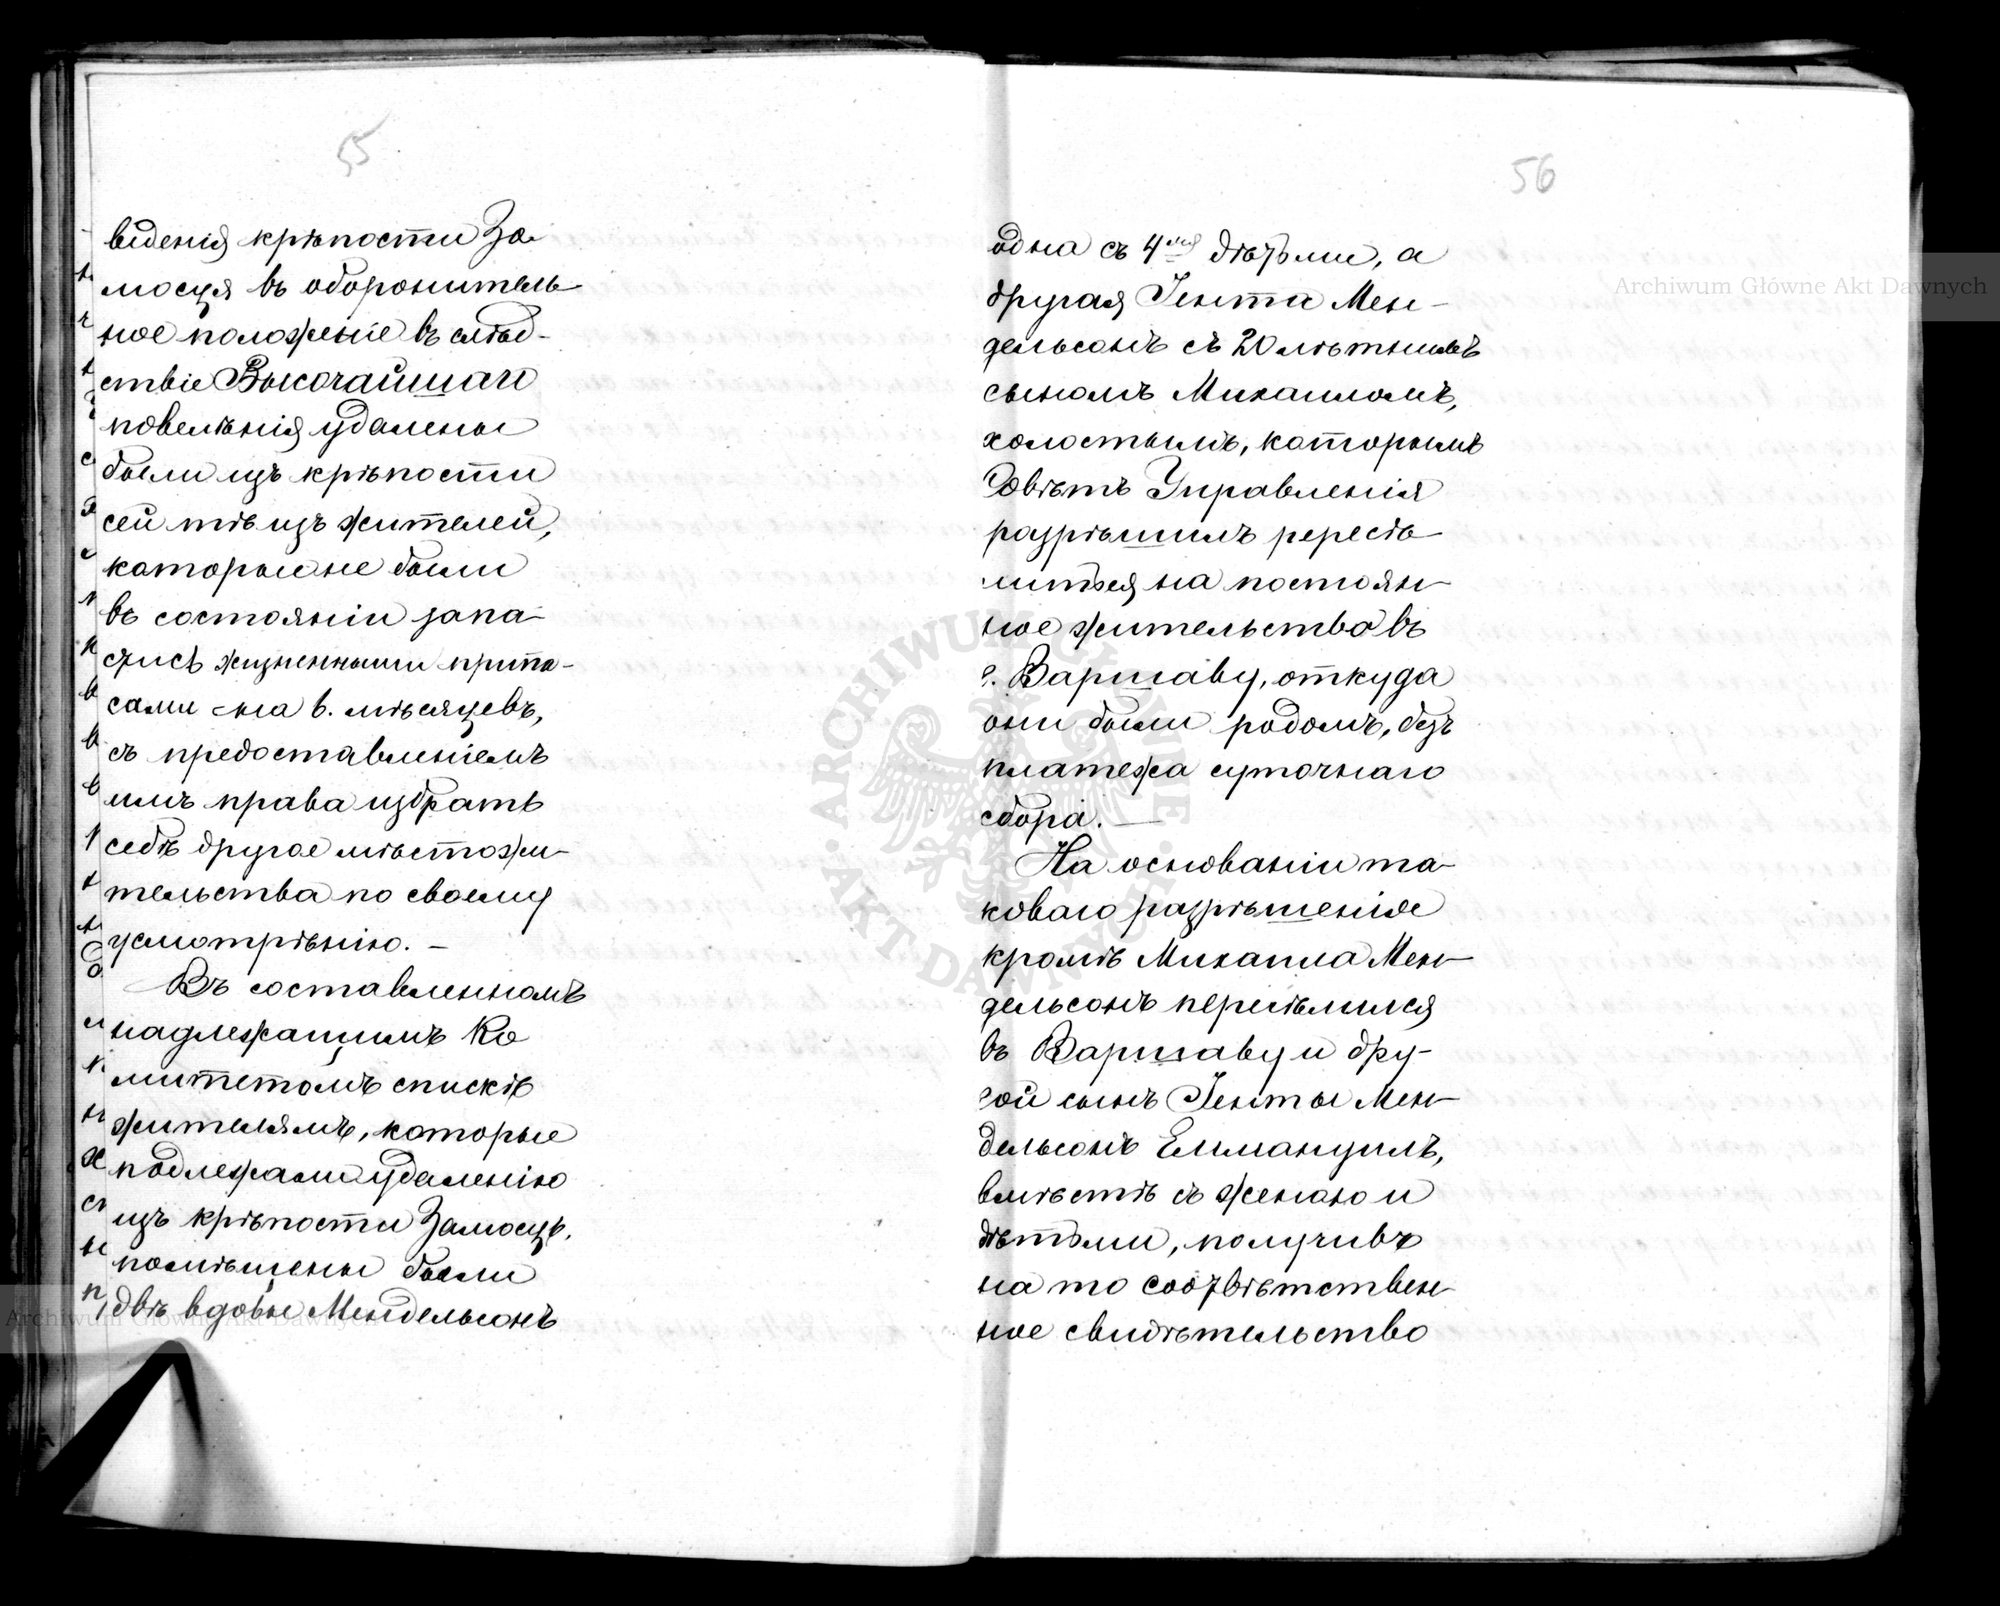 55
веденія крѣпости За-
мосця въ оборонитель-
ное положеніе въ слѣд-
ствіе Высочайшаго
повелѣнія удалены
были изъ крѣпости
сей тѣ изъ жителей,
которые не были
въ состояніи запа-
стись жизненными припа-
сами на 6. мѣсяцевъ,
съ предоставленіемъ
имъ права избрать
себѣ другое мѣстожи-
тельства по своему
усмотрѣнію. —
Въ составленномъ
надлежащимъ Ко-
митетомъ спискѣ
жителямъ, которые
подлежали удаленію
изъ крѣпости Замосць,
помѣщены были
двѣ вдовы Мендельсонъ
56
одна съ 4мя дѣтьми, а
другая Гента Мен-
дельсонъ съ 20 лѣтнимъ
сыномъ Михаиломъ,
холостымъ, которымъ
Совѣтъ Управленія
разрѣшилъ переся-
литься на постоян-
ное жительство въ
г. Варшаву, откуда
они были родомъ, безъ
платежа суточнаго
сбора. —
На основаніи та-
коваго разрѣшенія
кромѣ Михаила Мен-
дельсонъ переѣлился
въ Варшаву и дру-
гой сынъ Генты Мен-
дельсонъ Еммануилъ,
вмѣстѣ съ женою и
дѣтьми, получивъ
на то соотвѣтствен-
ное свидѣтельство
Archiwum Główne Akt Dawnych
ARCHIWUM GŁÓWNE AKT DAWNYCH
Archiwum Główne Akt Dawnych